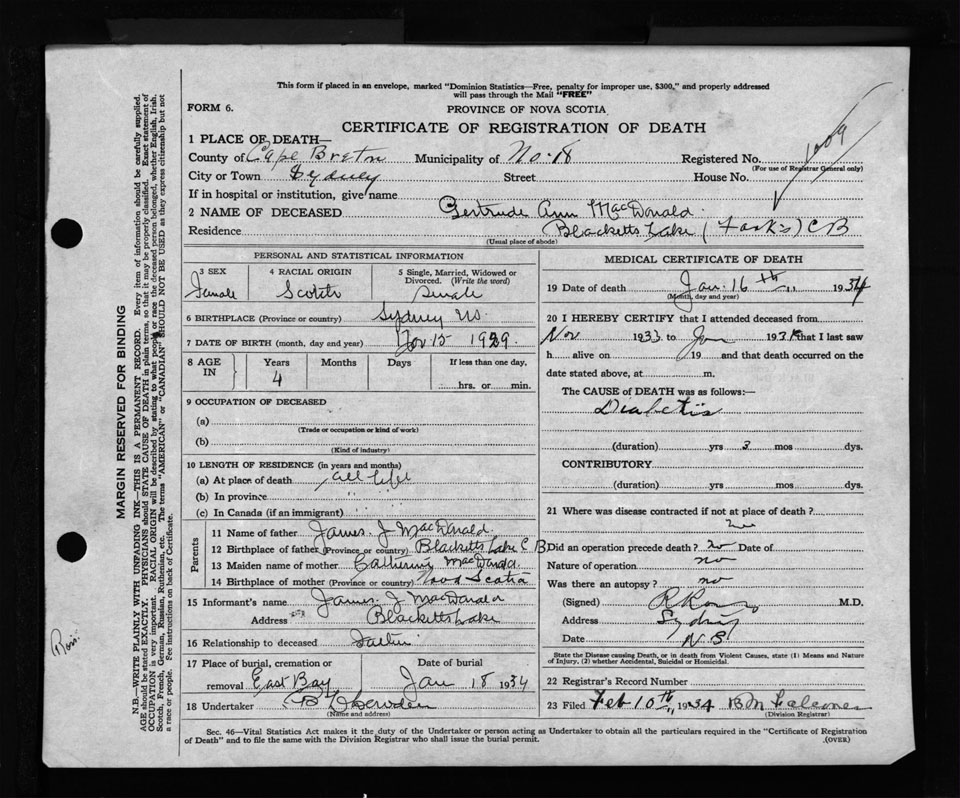 This form if placed in an envelope, marked "Dominion Statistics—Free, penalty for improper use, $300," and properly addressed
will pass through the Mail "FREE"
FORM 6.
PROVINCE OF NOVA SCOTIA
CERTIFICATE OF REGISTRATION OF DEATH
1 PLACE OF DEATH—
County of Cape Breton Municipality of No. 18 Registered No. 1009
(For use of Registrar General only)
City or Town Sydney Street House No.
If in hospital or institution, give name
2 NAME OF DECEASED Gertrude Ann MacDonald
Residence Blacketts Lake (Forks) C B
(Usual place of abode)
PERSONAL AND STATISTICAL INFORMATION
3 SEX 4 RACIAL ORIGIN 5 Single, Married, Widowed or Divorced. (Write the word)
Female Scotch Single
6 BIRTHPLACE (Province or country) Sydney NS.
7 DATE OF BIRTH (month, day and year) Nov 15 1929.
8 AGE IN Years Months Days If less than one day,
4 hrs. or min.
9 OCCUPATION OF DECEASED
(a)
(Trade or occupation or kind of work)
(b)
(Kind of industry)
10 LENGTH OF RESIDENCE (in years and months)
(a) At place of death all life
(b) In province " "
(c) In Canada (if an immigrant)
Parents
11 Name of father James. J MacDonald.
12 Birthplace of father (Province or country) Blacketts Lake C B.
13 Maiden name of mother Catherine MacDonald.
14 Birthplace of mother (Province or country) Nova Scotia
15 Informant's name James. J MacDonald
Address Blacketts Lake
16 Relationship to deceased Father
17 Place of burial, cremation or removal East Bay Date of burial Jan 18 1934
18 Undertaker
(Name and address)
MEDICAL CERTIFICATE OF DEATH
19 Date of death Jan. 16th 1934
(Month, day and year)
20 I HEREBY CERTIFY that I attended deceased from
Nov 1933 to Jan 1934 that I last saw
h alive on 19 and that death occurred on the
date stated above, at m.
The CAUSE of DEATH was as follows:—
Diabetis
(duration) yrs 3 mos dys.
CONTRIBUTORY
(duration) yrs mos dys.
21 Where was disease contracted if not at place of death?
Did an operation precede death? no Date of
Nature of operation no
Was there an autopsy? no
(Signed) M.D.
Address Sydney
Date N.S.
State the Disease causing Death, or in death from Violent Causes, state (1) Means and Nature of Injury, (2) whether Accidental, Suicidal or Homicidal.
22 Registrar's Record Number
23 Filed Feb 10th, 1934 B M Falconer
(Division Registrar)
Sec. 46—Vital Statistics Act makes it the duty of the Undertaker or person acting as Undertaker to obtain all the particulars required in the "Certificate of Registration
of Death" and to file the same with the Division Registrar who shall issue the burial permit. (OVER)
MARGIN RESERVED FOR BINDING
N.B.—WRITE PLAINLY WITH UNFADING INK—THIS IS A PERMANENT RECORD. Every item of information should be carefully supplied.
AGE should be stated EXACTLY. PHYSICIANS should STATE CAUSE OF DEATH in plain terms, so that it may be properly classified. Exact statement of
OCCUPATION is very important. RACIAL ORIGIN will be described by stating to what people or race the deceased person belonged, whether English, Irish,
Scotch, French, German, Russian, Ruthenian, etc. The terms "AMERICAN" or "CANADIAN" SHOULD NOT BE USED as they express citizenship but not
a race or people. See instructions on back of Certificate.